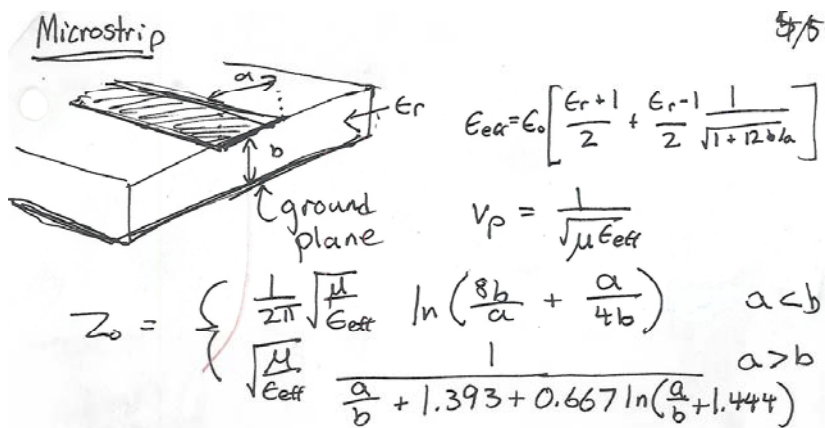 Microstrip
5/5
a
εr
b
ground
plane
εeff = ε₀ [ (εr + 1)/2 + (εr - 1)/2 1/√(1 + 12b/a) ]
vp = 1/√(μ εeff)
Z₀ = { 1/(2π) √(μ/εeff) ln(8b/a + a/(4b)) a < b
√(μ/εeff) 1/(a/b + 1.393 + 0.667 ln(a/b + 1.444)) a > b